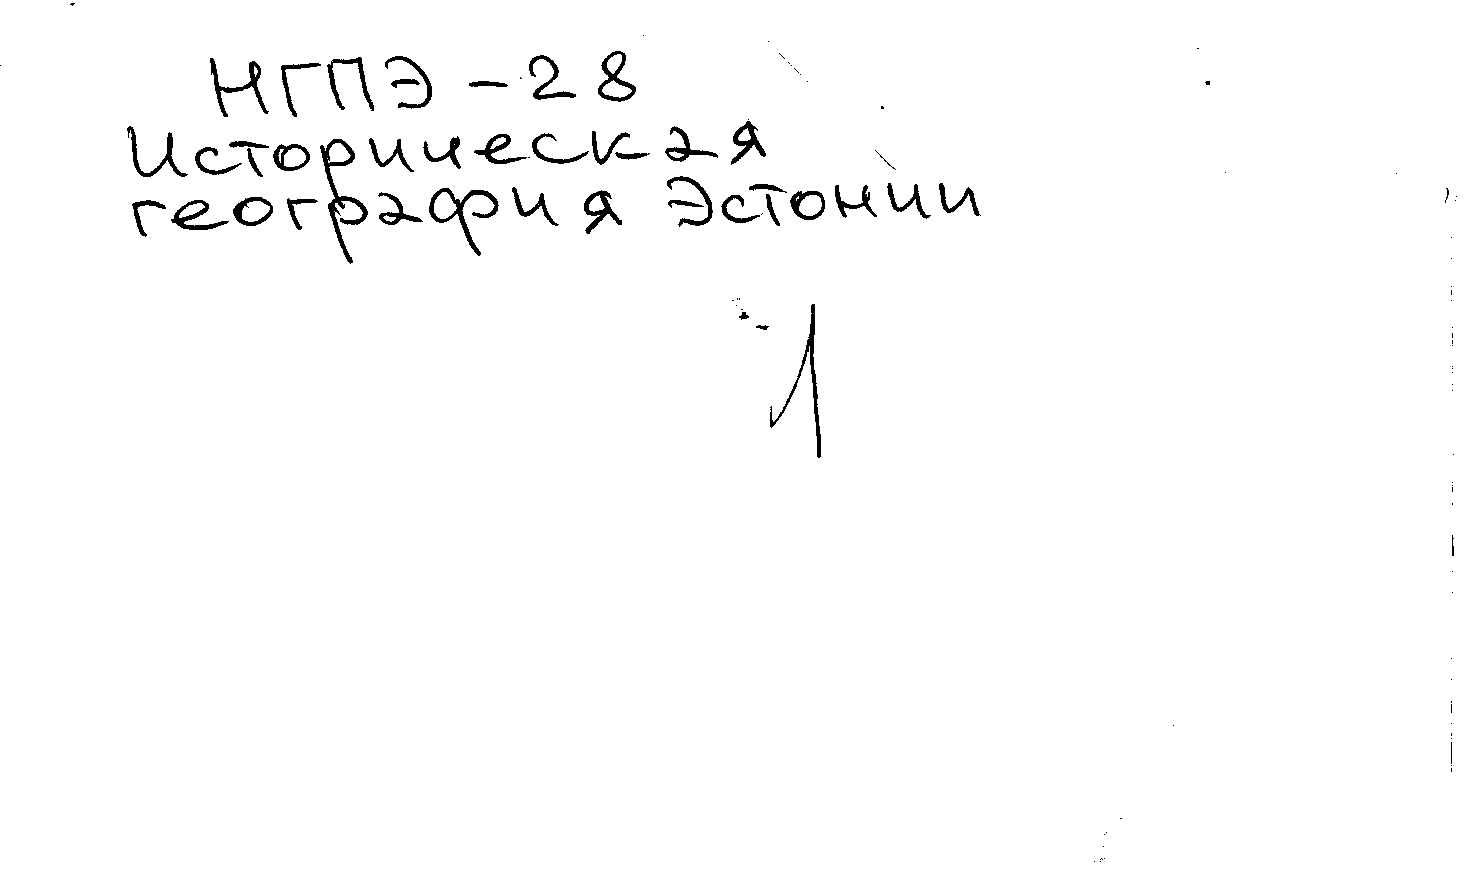 НГПЭ - 28
Историческая
география Эстонии
1